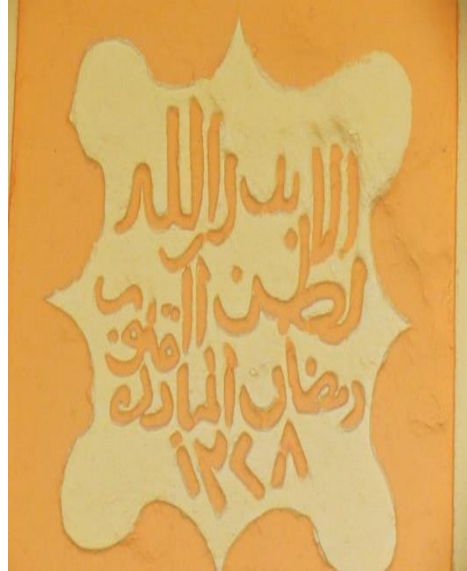 الا بذكر الله
تطمئن القلوب
رمضان المبارك